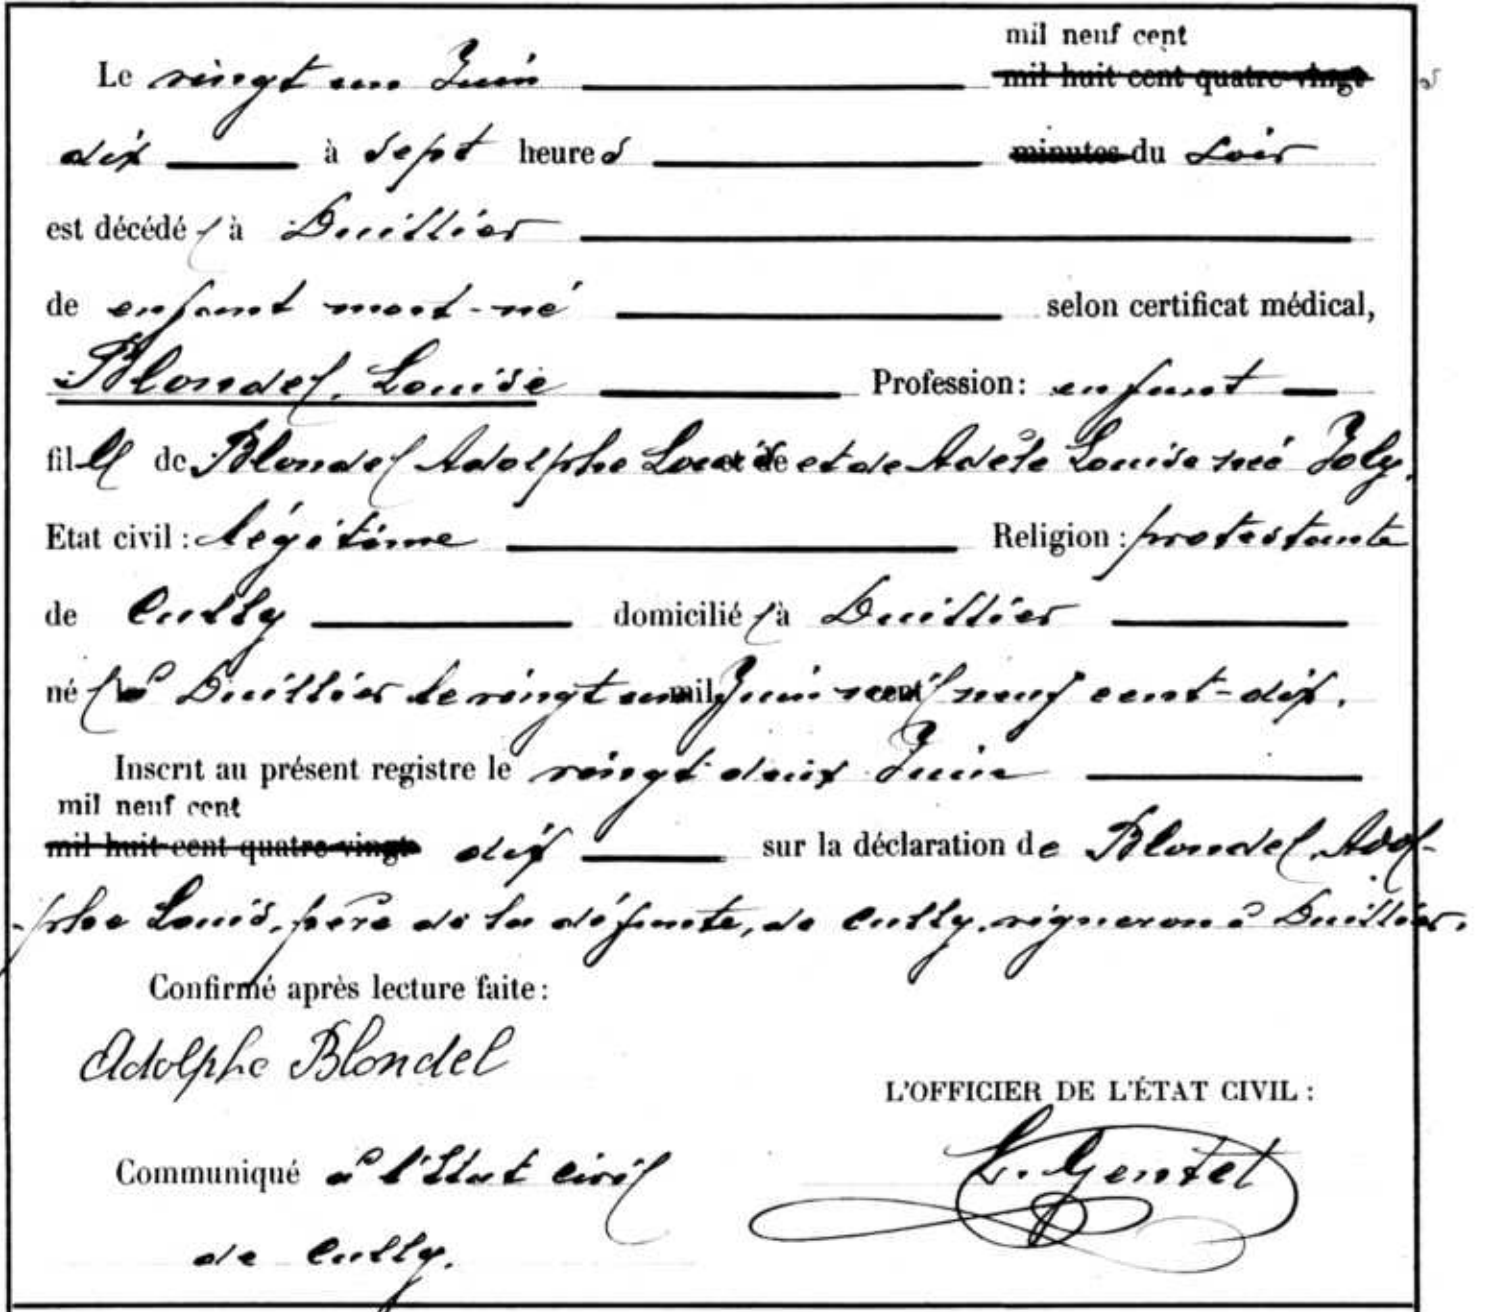 mil neuf cent
Le vingt un Juin mil huit cent quatre-vingt
dix à sept heures minutes du soir
est décédée à Duillier
de enfant mort-né selon certificat médical,
Blondel, Louise Profession: enfant
fille de Blondel Adolphe Louis et de Adèle Louise née Joly.
Etat civil: légitime Religion: protestante
de Cully domiciliée à Duillier
née à Duillier le vingt un Juin mil neuf cent-dix.
Inscrit au présent registre le vingt deux Juin
mil neuf cent
mil huit cent quatre-vingt dix sur la déclaration de Blondel, Adol-
-phe Louis, père de la défunte, de Cully, vigneron à Duillier.
Confirmé après lecture faite:
Adolphe Blondel
L'OFFICIER DE L'ÉTAT CIVIL:
L. Gentet
Communiqué à l'État civil
de Cully.